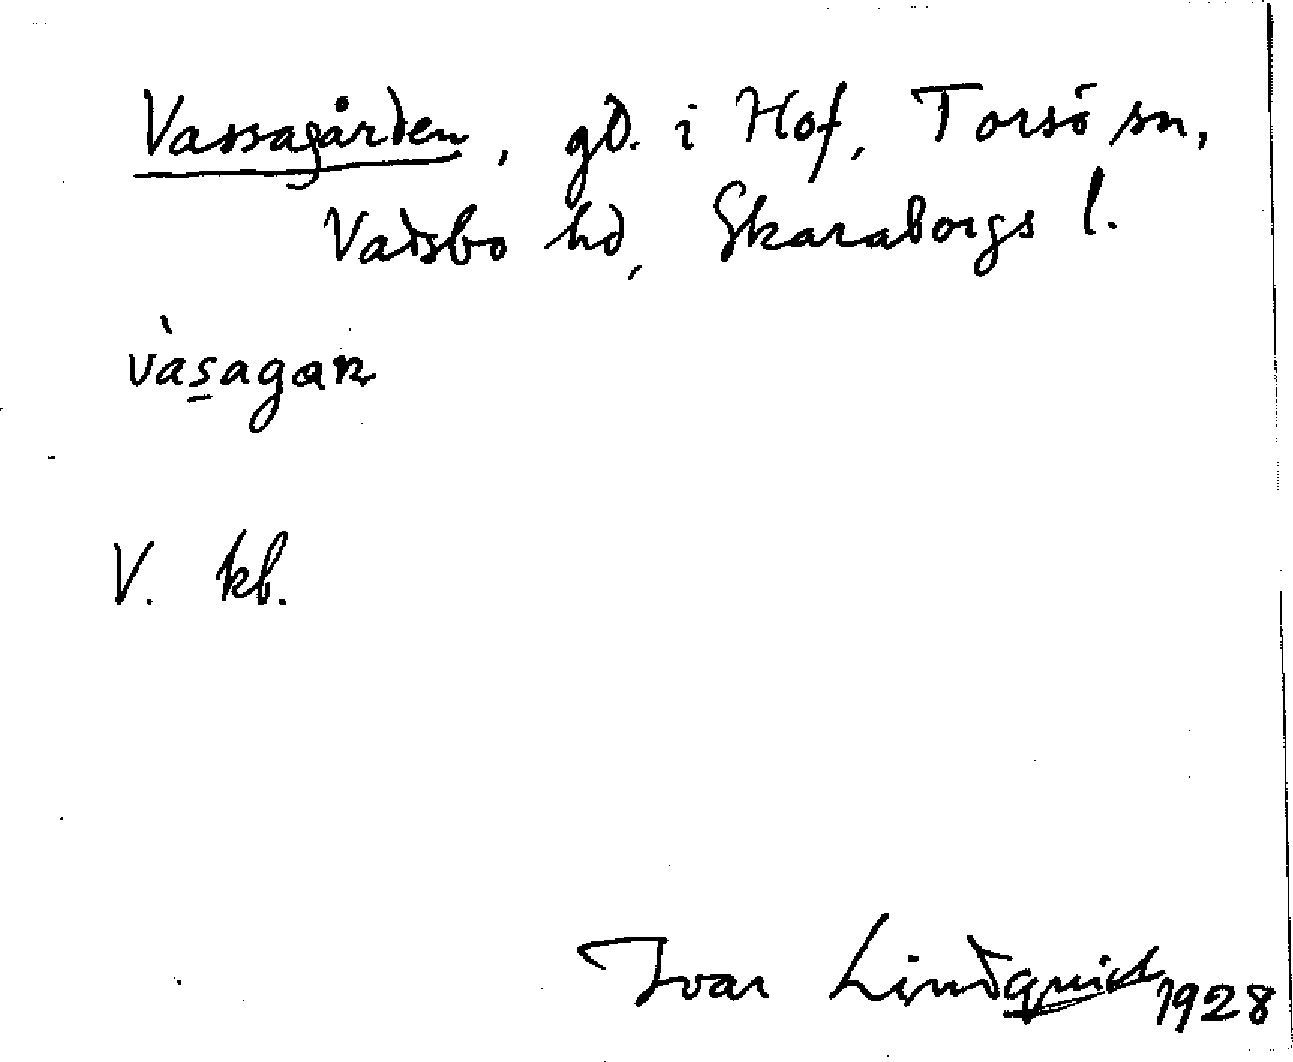 Vassagården, gd. i Hof, Torsö sn,
Vadsbo hd, Skaraborgs l.
vàs̲agaɴ
V. kb.
Ivar Lindquist 1928